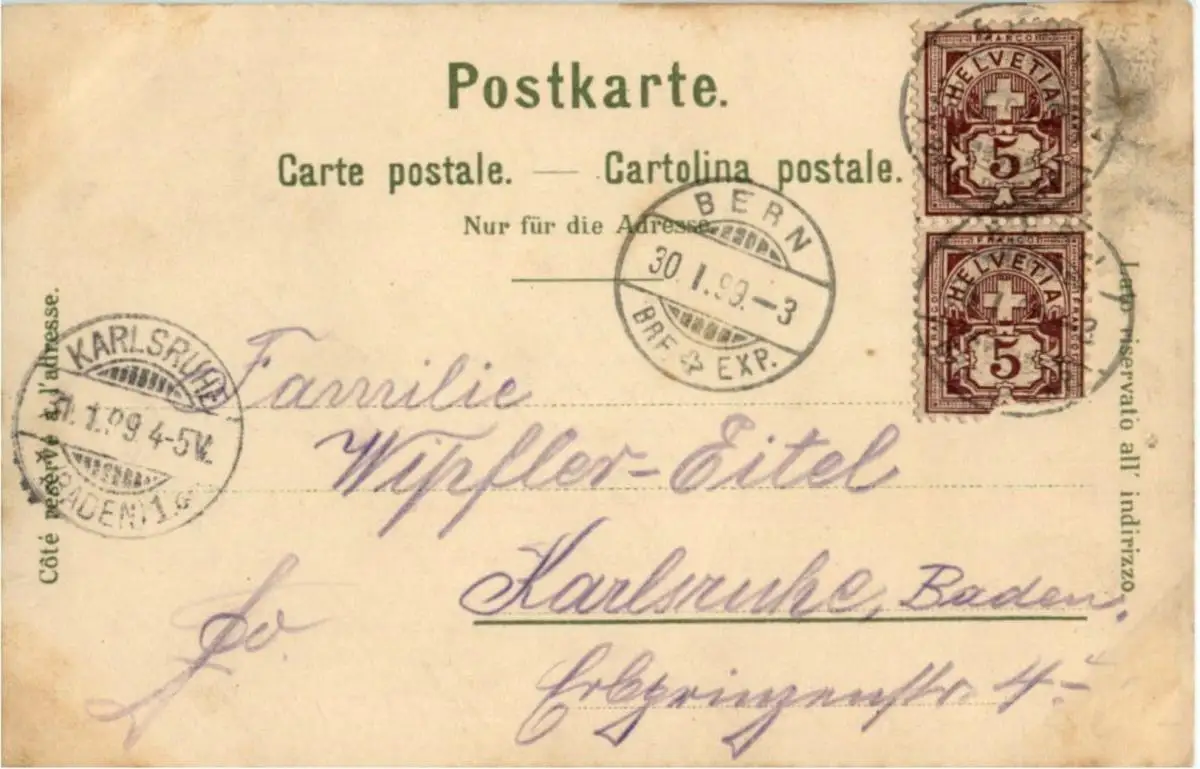 Postkarte.
Carte postale. — Cartolina postale.
Nur für die Adresse.
FRANCO
HELVETIA
5
FRANCO
HELVETIA
5
BERN
30. I. 99. – 3
BRF. EXP.
KARLSRUHE
1. 99 4-5V.
(BADEN) 1.
Côté réservé à l'adresse.
Lato riservato all' indirizzo.
Familie
Wipfler-Eitel
Karlsruhe, Baden.
Erbprinzenstr. 4